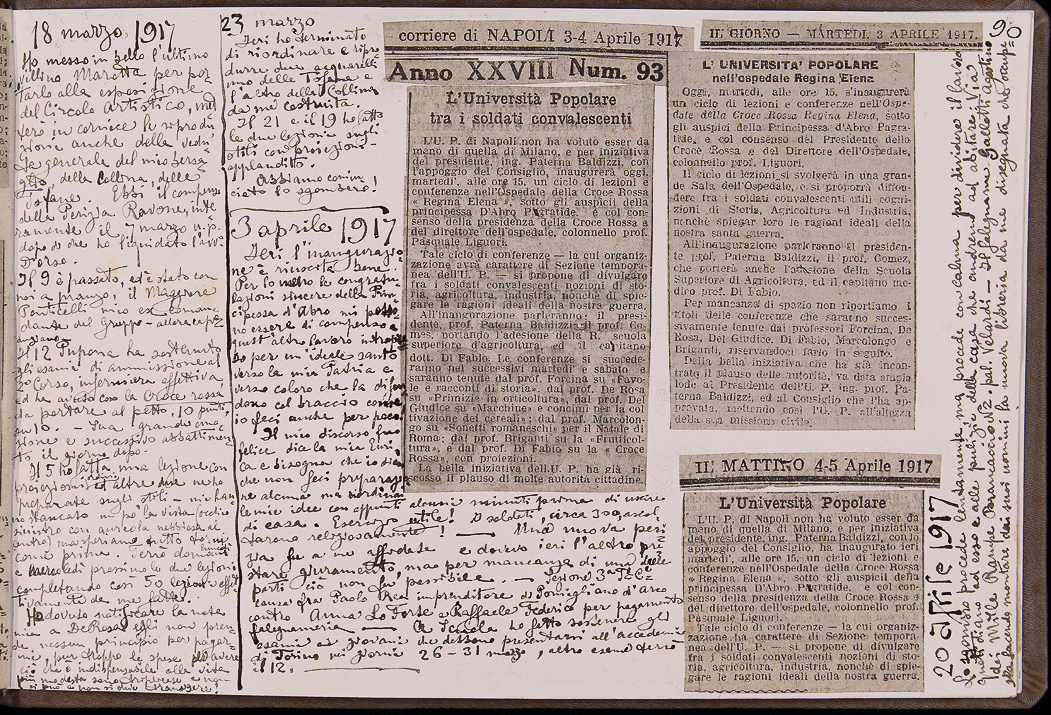 18 marzo 1917
Ho messo in bello l'ultimo
villino Marotta per por
tarlo alla esposizione
del Circolo Artistico, mi
fero in cornice le riprodu
zioni anche della vedu
ta generale del mio
della collina, delle
Tofane. Ebbi il compenso
della Perizia Ravone, inte
ramente il 7 marzo u.p.
dopo che ho liquidato l'avv.
D'Orso.
Il 9 è passato, ed è stato con
noi a pranzo, il Maggiore
Ponticelli mio ex coman
dante del Gruppo - allora capi
tano.
Il 12 ha sostenuto
gli esami di ammissione al
2º Corso, infermiera effettiva
ed ha avuto così la Croce rossa
da portare al petto, 10 punti
su 10. - Sua grande emo
zione e successivo abbattimen
to il giorno dopo.
Il 15 ho fatta una lezione con
proiezioni ed altre due ne ho
preparate sugli stili - mi han
no stancato un po la vista (occhio
sinistro con nebbiosa) al
centro ma speriamo tutto torni
come prima. Terrò domani lunedì
e mercoledì prossimo due lezioni
completando così 50 lezioni effet
tivamente da me fatte.
Ho dovuto notificare la nota
mia a De Rosa. Egli non pren
de nessun principio per pagar
mi purtroppo le spese
che è indispensabile alla vista
più modesta sono
23 marzo
Ieri ho terminato
di riordinare e ripro
durre due acquarelli
uno delle Tofane e
l'altro della Collina
da me costruita.
Il 21 e il 19 ho fatto
le due lezioni sugli
stili con proiezioni -
applaudito.
Abbiamo comin
ciato lo sgombero!
3 aprile 1917
Ieri l'inaugurazio
ne è riuscita bene.
Per lo meno le congratu
lazioni sincere della Prin
cipessa d'Abro mi pos
no essere di compenso a
quest'altro lavoro intrapre
so per un ideale santo
verso la mia Patria e
verso coloro che la difen
dono col braccio come
io feci anche per poco.
Il mio discorso fu
felice dice la mia Enri
ca e bisogna che io dica
che non feci prepara
re alcuna ma riordinai
le mie idee con appunti alcuni minuti prima di uscire
di casa. Esercizio utile! I soldati, circa 300, ascol
tarono religiosamente! - Una nuova peri
zia fu a me affidata e dovevo ieri l'altro pre
stare giuramento, ma per mancanza di una delle
parti ciò non fu possibile - Sezione 3ª T.e C.e
causa fra Paolo Crea imprenditore di Pomigliano d'arco
contro Anna Lo Forte e Raffaele Federico per pagamento
falegnameria. A Scuola ho fatto sostenere gli
esami ai giovani che devono presentarsi all'accademia
di Torino nei giorni 26-31 marzo, altro esame terrò
il 12.
corriere di NAPOLI 3-4 Aprile 1917
Anno XXVIII Num. 93
L'Università Popolare
tra i soldati convalescenti
L'U. P. di Napoli non ha voluto esser da
meno di quella di Milano, e per iniziativa
del presidente, ing. Paterna Baldizzi, con
l'appoggio del Consiglio, inaugurerà oggi,
martedì, alle ore 15, un ciclo di lezioni e
conferenze nell'Ospedale della Croce Rossa
« Regina Elena », sotto gli auspicii della
principessa D'Abro Pagratide, e col con-
senso della presidenza della Croce Rossa e
del direttore dell'ospedale, colonnello prof.
Pasquale Liguori.
Tale ciclo di conferenze — la cui orga-
nizzazione avrà carattere di Sezione tempora-
nea dell'U. P. — si propone di divulgare
fra i soldati convalescenti nozioni di sto-
ria, agricoltura, industria, nonchè di spie-
gare le ragioni ideali della nostra guerra.
All'inaugurazione parleranno: il presi-
dente, prof. Paterna Baldizzi, il prof. Go-
mes, portando l'adesione della R. scuola
superiore d'agricoltura, ed il capitano
dott. Di Fabio. Le conferenze si succede-
ranno nei successivi martedì e sabato e
saranno tenute dal prof. Forcina su «Favo-
le e racconti di storia», dal prof. De Rosa
su «Primizie in orticoltura», dal prof. Del
Giudice su «Macchine» e concimi per la col-
tivazione dei cereali; dal prof. Marcolon-
go su «Sonetti romaneschi per il Natale di
Roma; dal prof. Briganti su la «Frutticol-
tura», e dal prof. Di Fabio su la « Croce
Rossa», con proiezioni.
La bella iniziativa dell'U. P. ha già ri-
scosso il plauso di molte autorità cittadine.
IL GIORNO — MARTEDI, 3 APRILE 1917.
90
L' UNIVERSITA' POPOLARE
nell'ospedale Regina Elena
Oggi, martedì, alle ore 15, s'inaugurerà
un ciclo di lezioni e conferenze nell'Ospe-
dale della Croce Rossa Regina Elena, sotto
gli auspicii della Principessa d'Abro Pagra-
tide, e col consenso del Presidente della
Croce Rossa e del Direttore dell'Ospedale,
colonnello prof. Liguori.
Il ciclo di lezioni si svolgerà in una gran-
de Sala dell'Ospedale, e si proporrà diffon-
dere tra i soldati convalescenti utili cogni-
zioni di Storia, Agricoltura ed Industria,
nonchè spiegare loro le ragioni ideali della
nostra santa guerra.
All'inaugurazione parleranno il presiden-
te prof. Paterna Baldizzi, il prof. Gomez,
che porterà anche l'adesione della Scuola
Superiore di Agricoltura, ed il capitano me-
dico prof. Di Fabio.
Per mancanza di spazio non riportiamo i
titoli delle conferenze che saranno succes-
sivamente tenute dai professori Forcina, De
Rosa, Del Giudice, Di Fabio, Marcolongo e
Briganti, riservandoci farlo in seguito.
Della bella iniziativa che ha già incon-
trato il plauso delle autorità, va data ampia
lode al Presidente dell'U. P. ing. prof. Pa-
terna Baldizzi, ed al Consiglio che l'ha ap-
provata, mettendo così l'U. P. all'altezza
della sua missione civile.
IL MATTINO 4-5 Aprile 1917
L'Università Popolare
L'U. P. di Napoli non ha voluto esser da
meno di quella di Milano, e, per iniziativa
del presidente, ing. Paterna Baldizzi, con
l'appoggio del Consiglio, ha inaugurato ieri
martedì, alle ore 15, un ciclo di lezioni e
conferenze nell'Ospedale della Croce Rossa
« Regina Elena », sotto gli auspicii della
principessa D'Abro Pagratide, e col con-
senso della presidenza della Croce Rossa e
del direttore dell'ospedale, colonnello prof.
Pasquale Liguori.
Tale ciclo di conferenze — la cui organiz-
zazione ha carattere di Sezione tempora-
nea dell'U. P. — si propone di divulgare
fra i soldati convalescenti nozioni di sto-
ria, agricoltura, industria, nonchè di spie-
gare le ragioni ideali della nostra guerra.
20 aprile 1917
Lo sgombro procede lentamente, ma procede con calma per dividere il lavoro
inerente ad esso e alle pulizie della casa che andremo ad abitare Via
delle Mille Rampe Brancaccio 12 pal. Velardi - Il falegname Galletti Agostino
sta facendo montare dai suoi uomini la nuova libreria da me disegnata che occupe